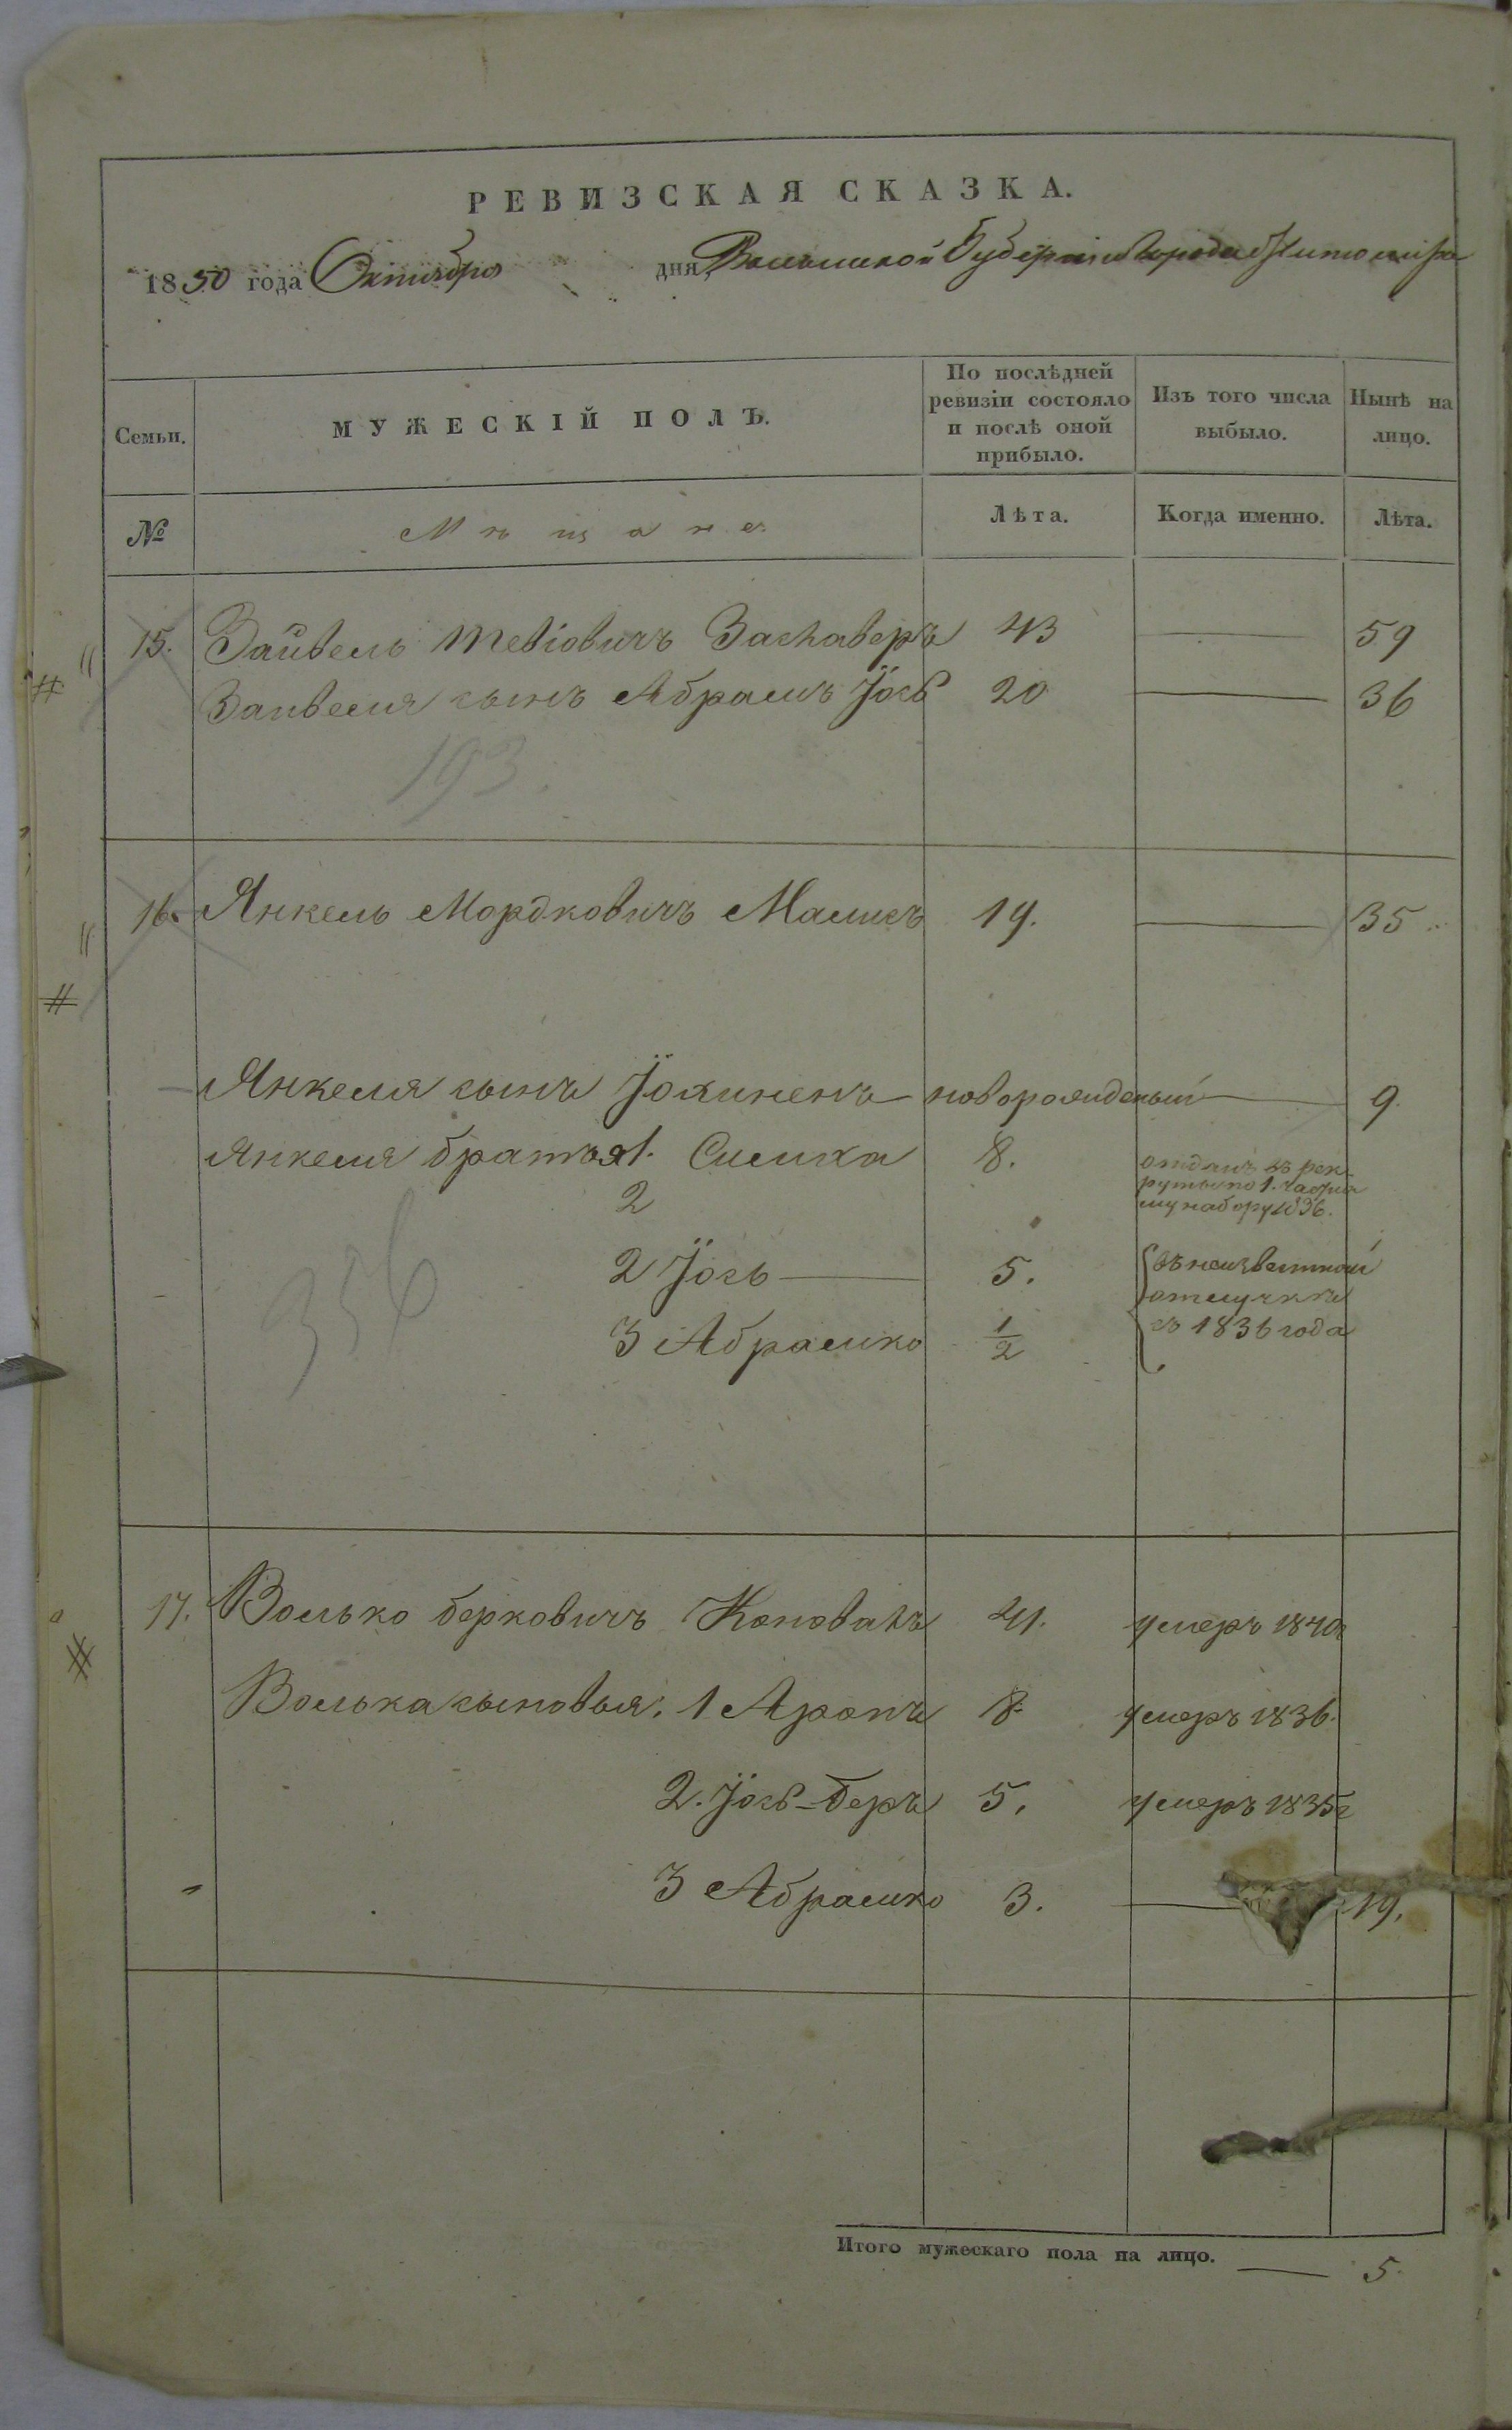 РЕВИЗСКАЯ СКАЗКА.
1850 года Октября дня, Волынской Губернии Города Житомира
Семьи.
МУЖЕСКІЙ ПОЛЪ.
По послѣдней ревизіи состояло и послѣ оной прибыло.
Изъ того числа выбыло.
Нынѣ на лицо.
№
Мѣщане
Лѣта.
Когда именно.
Лѣта.
15. Зайвель Мевіовичъ Заславеръ 43 — 59
Зайвеля сынъ Абрамъ Іось 20 — 36
193.
16. Янкель Мордковичъ Маликъ 19. — 35
Янкеля сынъ Іохиненъ новорожденый — 9.
Янкеля братья 1. Симха 8. отданъ въ рек-
руты по 1. частно
му набору 1836.
2
2 Іось — 5. въ неизвестной
отлучкѣ
3 Абрамко 1/2 съ 1836 года
356
17. Волько берковичъ Коновалъ 41. умеръ 1840г
Волька сыновья: 1 Аронъ 8. умеръ 1836.
2. Іось-беръ 5. умеръ 1835г
3 Абрамко 3. — 19.
Итого мужескаго пола на лицо. — 5.